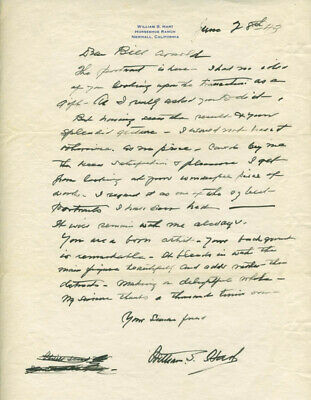 WILLIAM S. HART
HORSESHOE RANCH
NEWHALL, CALIFORNIA
June 28th
Dear Bill
The portrait is here - I had no idea
of you looking upon the transaction as a
gift - As I
But having seen the results of your
splendid - I would not have it
otherwise - no price - could buy me
the keen satisfaction & pleasure I get
from looking at your wonderful piece of
work. I regard it as one of the best
portraits I have ever had -
It will remain with me always -
You are a born artist - Your background
is remarkable - It blends in with the
main figure beautifully and adds rather than
detracts - making a delightful whole -
My sincere thanks a thousand times over -
Your sincere friend
William S. Hart